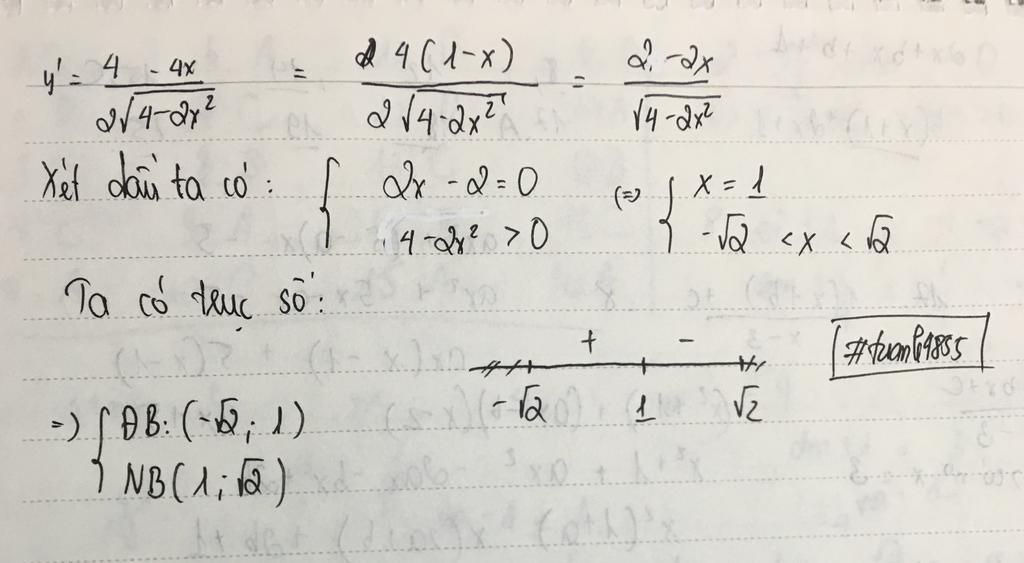 y' = \frac{4 - 4x}{2\sqrt{4-2x^2}} = \frac{4(1-x)}{2\sqrt{4-2x^2}} = \frac{2-2x}{\sqrt{4-2x^2}}
Xét dấu ta có: { 2x - 2 = 0 (=> { x = 1
4 - 2x² > 0 -√2 < x < √2
Ta có trục số:
+ -
-√2 1 √2
=> { ĐB: (-√2; 1)
NB (1; √2)